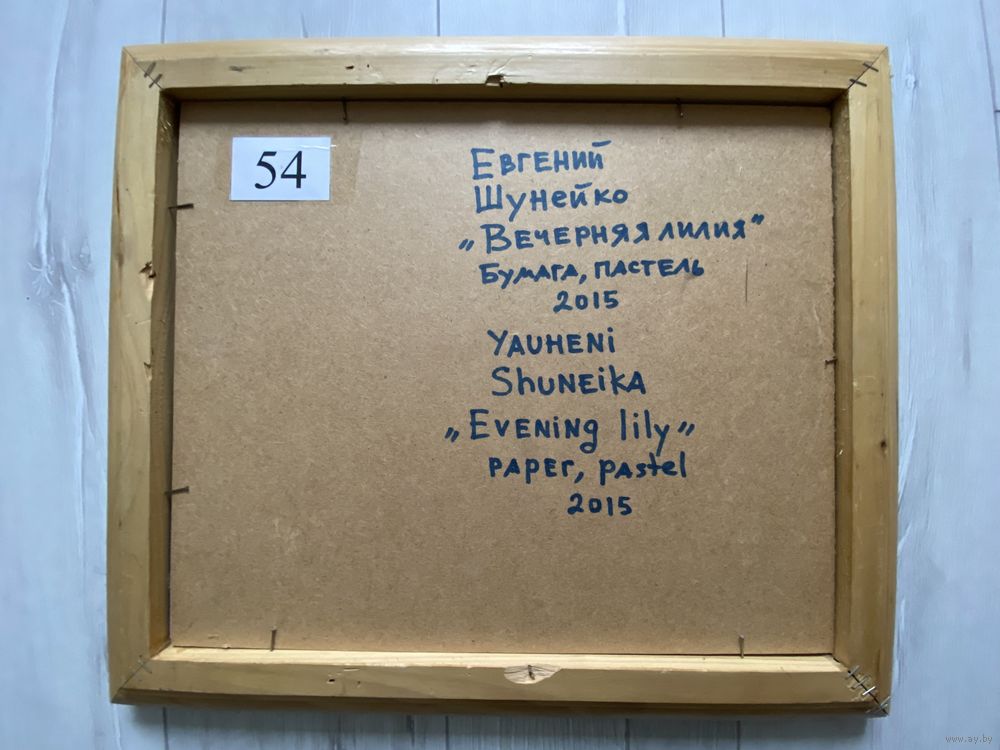 54
Евгений
Шунейко
„Вечерняя лилия”
Бумага, пастель
2015
Yauheni
Shuneika
„Evening lily”
paper, pastel
2015
www.ay.by